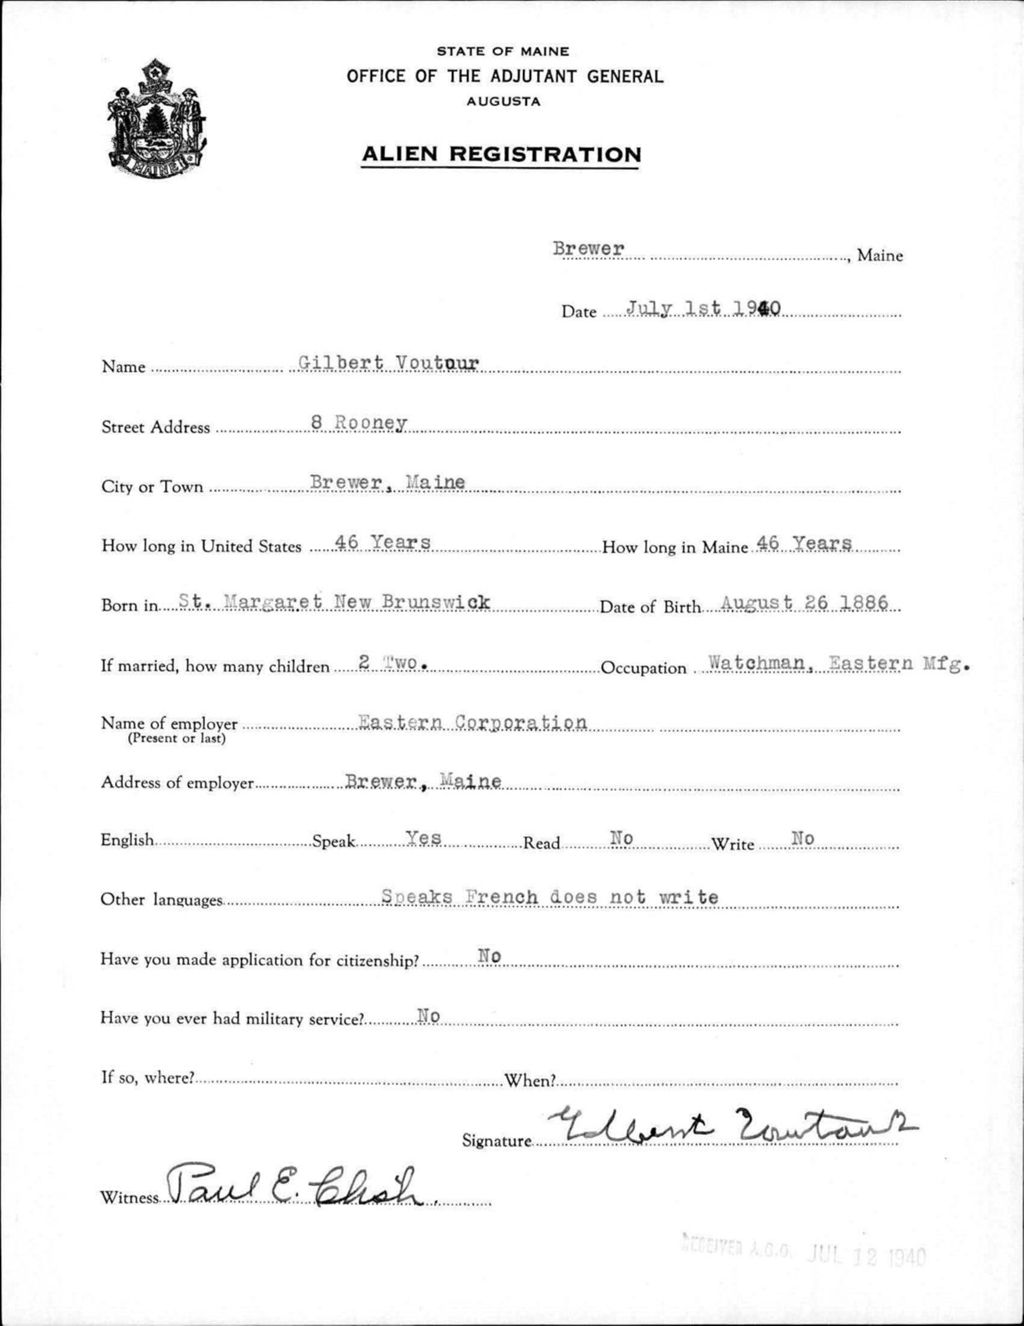 STATE OF MAINE
OFFICE OF THE ADJUTANT GENERAL
AUGUSTA
ALIEN REGISTRATION
MAINE
Brewer, Maine
Date July 1st 1940
Name Gilbert Voutour
Street Address 8 Rooney
City or Town Brewer, Maine
How long in United States 46 Years How long in Maine 46 Years
Born in St. Margaret New Brunswick Date of Birth August 26 1886
If married, how many children 2 Two. Occupation Watchman, Eastern Mfg.
Name of employer Eastern Corporation
(Present or last)
Address of employer Brewer, Maine
English Speak Yes Read No Write No
Other languages Speaks French does not write
Have you made application for citizenship? No
Have you ever had military service? No
If so, where? When?
Signature Gilbert Voutour
Witness Paul E.
RECEIVED A.G.O. JUL 12 1940